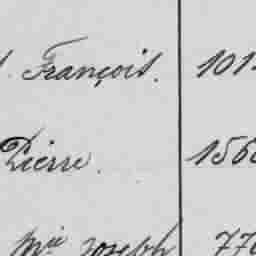 François. 101
Pierre. 156
Mie Joseph 77